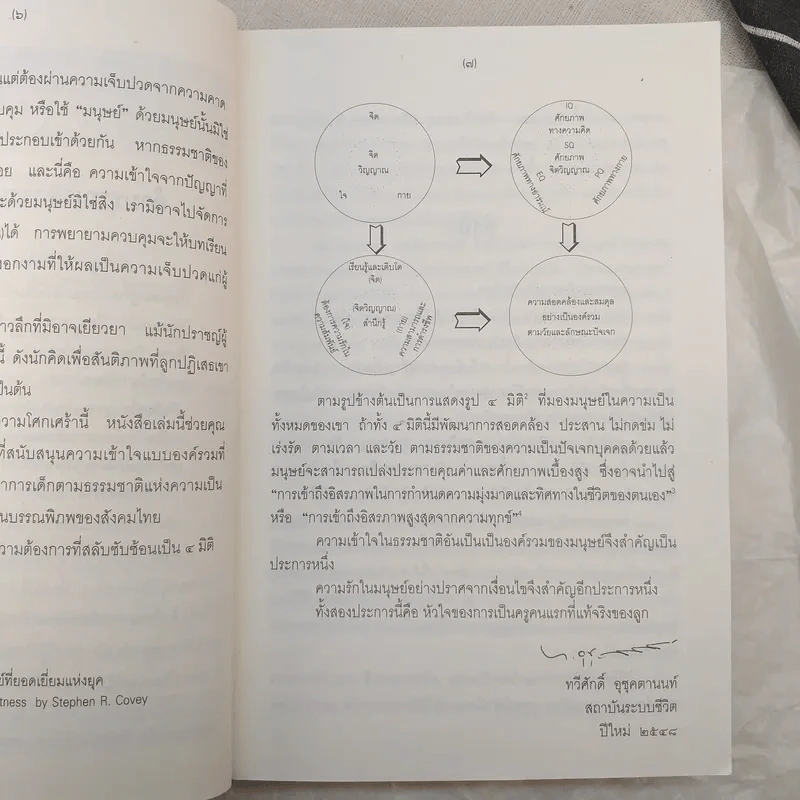 (๖)
นแต่ต้องผ่านความเจ็บปวดจากความคาด
บคุม หรือใช้ “มนุษย์” ด้วยมนุษย์นั้นมิใช่
ประกอบเข้าด้วยกัน หากธรรมชาติของ
อย และนี่คือ ความเข้าใจจากปัญญาที่
ะด้วยมนุษย์มิใช่สิ่ง เรามิอาจไปจัดการ
ได้ การพยายามควบคุมจะให้บทเรียน
งอกงามที่ให้ผลเป็นความเจ็บปวดแก่ผู้
าวลึกที่มิอาจเยียวยา แม้นักปราชญ์ผู้
นี้ ดังนักคิดเพื่อสันติภาพที่ลูกปฏิเสธเขา
ป็นต้น
ความโศกเศร้านี้ หนังสือเล่มนี้ช่วยคุณ
ที่สนับสนุนความเข้าใจแบบองค์รวมที่
าการเด็กตามธรรมชาติแห่งความเป็น
นบรรณพิภพของสังคมไทย
วามต้องการที่สลับซับซ้อนเป็น ๔ มิติ
ย์ที่ยอดเยี่ยมแห่งยุค
tness by Stephen R. Covey
(๗)
จิต
จิต
วิญญาณ
ใจ กาย
IQ
ศักยภาพ
ทางความคิด
SQ
ศักยภาพ
จิตวิญญาณ
EQ
ศักยภาพทางอารมณ์
PQ
ศักยภาพทางกาย
เรียนรู้และเติบโต
(จิต)
(จิตวิญญาณ)
สำนึกรู้
(ใจ)
ต้องการความรักใน
ความสัมพันธ์
(กาย)
ความสามารถและ
การดำรงชีพ
ความสอดคล้องและสมดุล
อย่างเป็นองค์รวม
ตามวัยและลักษณะปัจเจก
ตามรูปข้างต้นเป็นการแสดงรูป ๔ มิติ² ที่มองมนุษย์ในความเป็น
ทั้งหมดของเขา ถ้าทั้ง ๔ มิตินี้มีพัฒนาการสอดคล้อง ประสาน ไม่กดข่ม ไม่
เร่งรัด ตามเวลา และวัย ตามธรรมชาติของความเป็นปัจเจกบุคคลด้วยแล้ว
มนุษย์จะสามารถเปล่งประกายคุณค่าและศักยภาพเบื้องสูง ซึ่งอาจนำไปสู่
“การเข้าถึงอิสรภาพในการกำหนดความมุ่งมาดและทิศทางในชีวิตของตนเอง”³
หรือ “การเข้าถึงอิสรภาพสูงสุดจากความทุกข์”⁴
ความเข้าใจในธรรมชาติอันเป็นเป็นองค์รวมของมนุษย์จึงสำคัญเป็น
ประการหนึ่ง
ความรักในมนุษย์อย่างปราศจากเงื่อนไขจึงสำคัญอีกประการหนึ่ง
ทั้งสองประการนี้คือ หัวใจของการเป็นครูคนแรกที่แท้จริงของลูก
ทวีศักดิ์ อุชุคตานนท์
สถาบันระบบชีวิต
ปีใหม่ ๒๕๔๘